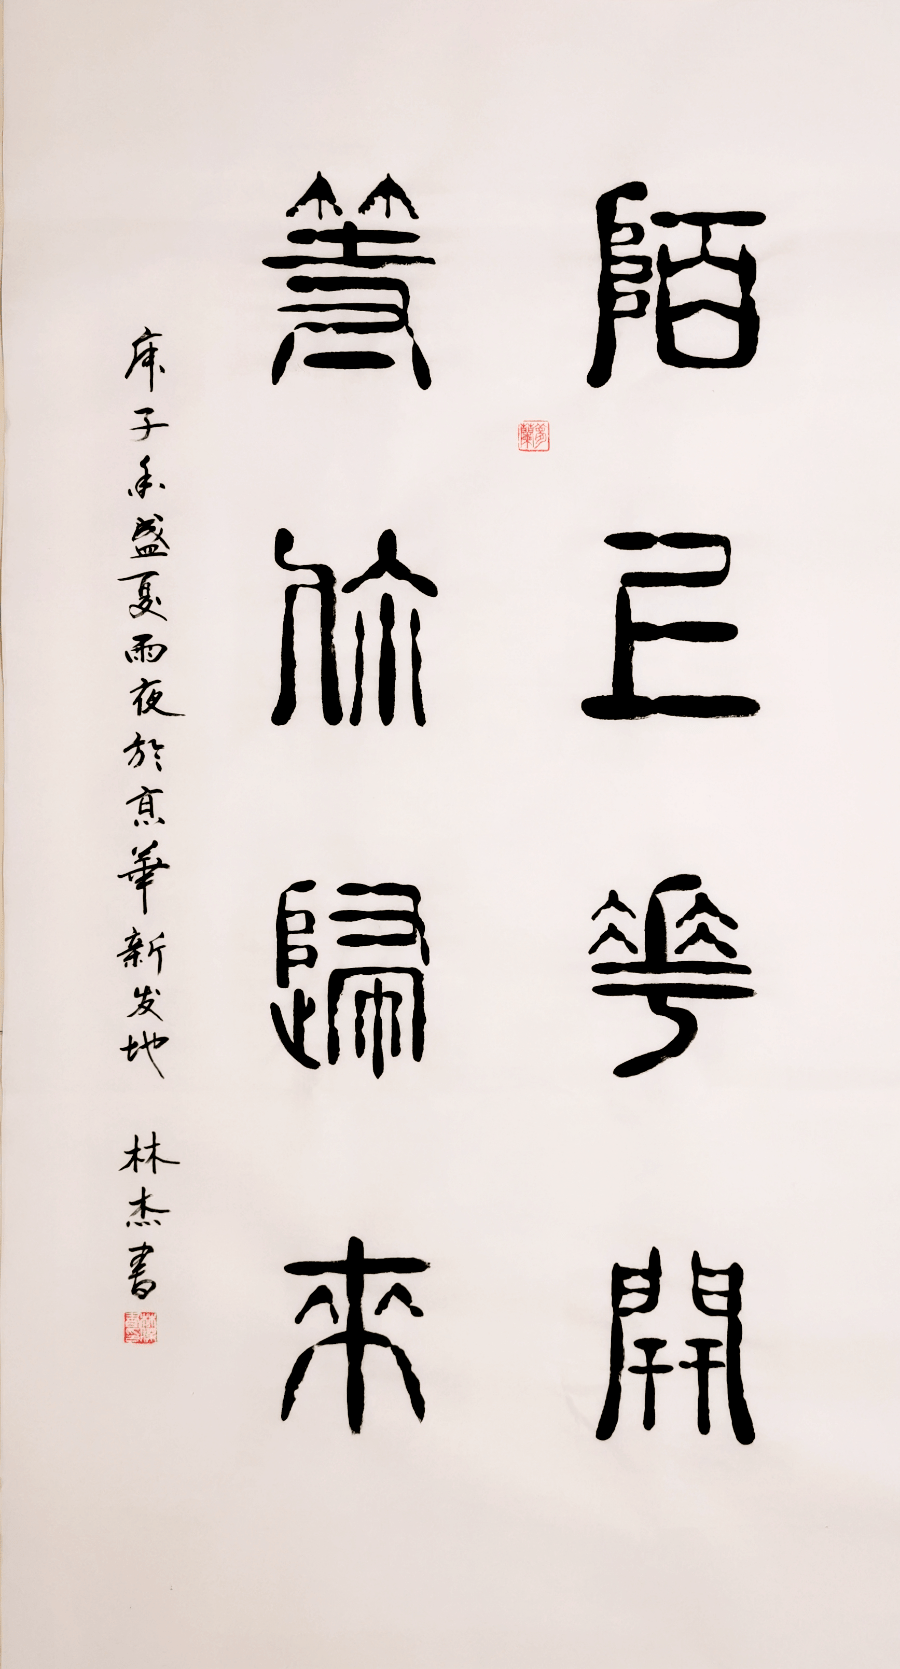 陌上華開
等你歸來
庚子年盛夏雨夜於京華新发地 林杰書